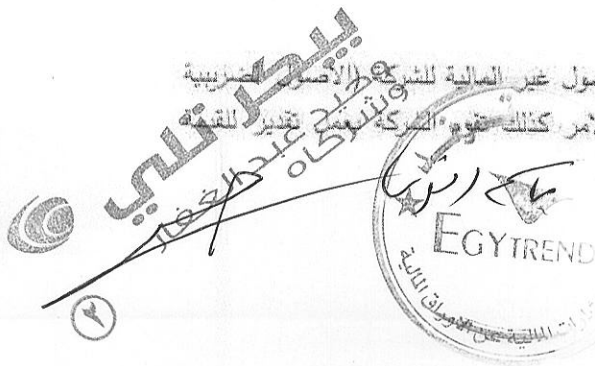 بيكر تلي
وحيد عبد الغفار
وشركاه
صول غير المالية للشركة (الأصول الضريبية
لأمر كذلك تقوم الشركة بعمل تقدير للقيمة
EGYTREND
المالية عن الأوراق المالية
٢